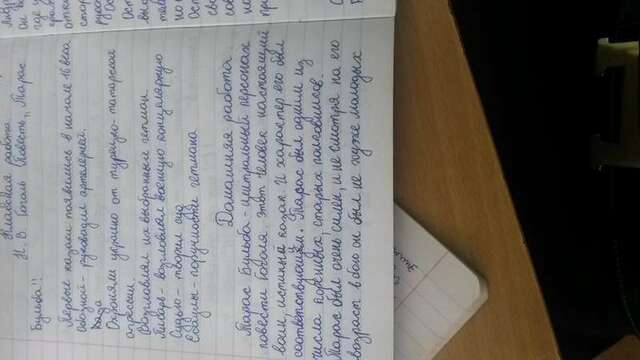 Классная работа
Н. В. Гоголь Повесть „Тарас
Бульба"
Первые казаки появились в начале 16 века
Обозной - руководил артелерией.
Охроняли украино от турецко-татарской
агрессии.
Возглавлял их выбранный гетман
Писарь - возглавлял военную
Судью - творил суд
Есаулы - поручности гетмана
Домашняя работа
Тарас Бульба - централный персонах
повести Гоголя. Этот человек настоящий
воин, истиный казак. И характер его был
соответствующим. Тарас был одним из
числа коренных, старых полковников.
Тарас был очень силен, и не смотря на его
возраст в бою он был не хуже молодых